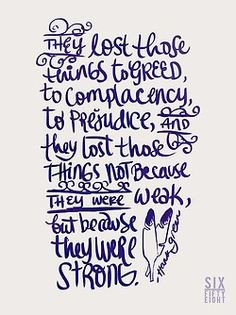 THEY lost those
things to GREED,
to complacency,
to PREJUDICE, AND
they lost those
THINGS NOT BECAUSE
THEY WERE WEAK,
but because
they were
STRONG.
SIX
FIFTY
EIGHT